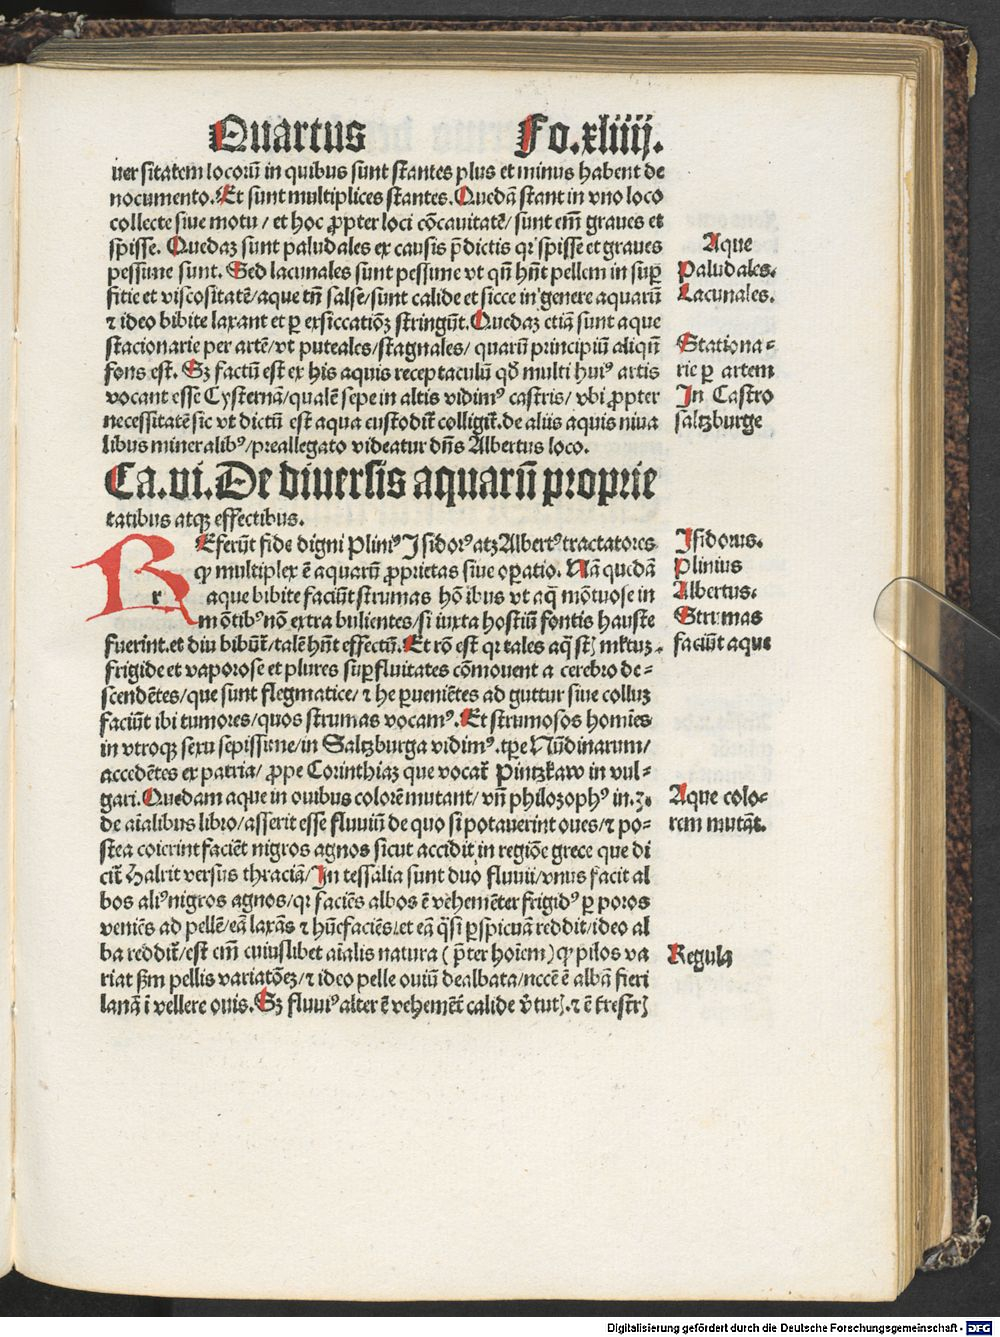 Quartus Fo.xliiij.
uersitatem locorū in quibus sunt stantes plus et minus habent de
nocumento. Et sunt multiplices stantes. Quedā stant in vno loco
collecte siue motu / et hoc ꝓpter loci cōcauitatē / sunt em̄ graues et
spisse. Quedaꝫ sunt paludales ex causis p̄dictis qꝛ spisse et graues
pessime sunt. Sed lacunales sunt pessime vt qn̄ hn̄t pellem in suꝑ
fitie et viscositatē / aque tn̄ salse / sunt calide et sicce in genere aquarū
⁊ ideo bibite laxant et ꝑ exsiccatiōꝫ stringūt. Quedaꝫ etiā sunt aque
stacionarie per artē / vt puteales / stagnales / quarū principiū aliqn̄
fons est. Sꝫ factū est ex his aquis receptaculū qđ multi huiꝰ artis
vocant esse Cysternā / qualē sepe in altis vidimꝰ castris / vbi ꝓpter
necessitatē sic vt dictū est aqua custodit̄ colligit̄. de aliis aquis niua
libus mineralibꝰ / preallegato videatur dn̄s Albertus loco.
Aque
Paludales.
Lacunales.
Stationa-
rie ꝑ artem
In Castro
saltzburge
Ca.vi. De diuersis aquarū proprie
tatibus atqꝫ effectibus.
REferūt fide digni Pliniꝰ Isidorꝰ atꝫ Albertꝰ tractatores
r
ꝙ multiplex ē aquarū ꝓprietas siue oꝑatio. Nā quedā
aque bibite faciūt strumas hōibus vt aq̄ mōtuose in
mōtibꝰ nō extra bulientes / si iuxta hostiū fontis hauste
fuerint. et diu bibūt̄ / talē hn̄t effectū. Et rō est qꝛ tales aq̄
frigide et vaporose et plures suꝑfluitates cōmouent a cerebro de-
scendētes / que sunt flegmatice / ⁊ he ꝑueniētes ad guttur siue colluꝫ
faciūt ibi tumores / quos strumas vocamꝰ. Et strumosos homies
in vtroqꝫ sexu sepissime / in Saltzburga vidimꝰ. tꝑe Nūdinarum /
accedētes ex patria / ꝓpe Corinthiaꝫ que vocat̄ Pintzkaw in vul-
gari. Quedam aque in ouibus colorē mutant / vn̄ philozophꝰ in.3.
de aīalibus libro / asserit esse fluuiū de quo si potauerint oues / ⁊ po-
stea coierint faciēt nigros agnos sicut accidit in regiōe grece que di
cit̄ Halrit versus thraciā / In tessalia sunt duo fluuii / vnus facit al
bos aliꝰ nigros agnos / qꝛ faciēs albos ē vehemēter frigidꝰ ꝑ poros
veniēs ad pellē / eā laxās ⁊ hūefaciēs. et eā q̄si ꝑspicuā reddit / ideo al
ba reddit̄ / est em̄ cuiuslibet aīalis natura ( p̄ter hoīem ) ꝙ pilos va
riat ẜm pellis variatōeꝫ / ⁊ ideo pelle ouiū dealbata / nccē ē albā fieri
lanā ī vellere ouis. Sꝫ fluuiꝰ alter ē vehemēt̄ calide
Isidorus.
Plinius
Albertus.
Strumas
faciūt aque
Aque colo-
rem mutāt.
Regula
Digitalisierung gefördert durch die Deutsche Forschungsgemeinschaft - DFG